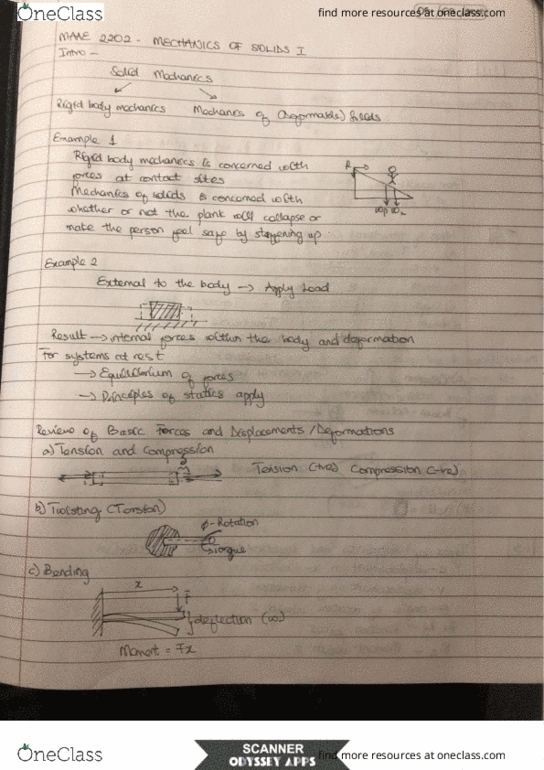 OneClass
find more resources at oneclass.com
MAAE 2202 - MECHANICS OF SOLIDS I
Intro -
Solid Mechanics
Rigid body mechanics Mechanics of (Deformable) Solids
Example 1
Rigid body mechanics is concerned with
forces at contact sites
Mechanics of solids is concerned with
whether or not the plank will collapse or
make the person feel safe by stiffening up
R
Example 2
External to the body → Apply Load
Result → internal forces within the body and deformation
For systems at rest
→ Equilibrium of forces
→ Principles of statics apply
Review of Basic Forces and Displacements / Deformations
a) Tension and Compression
Tension (+ve) Compression (-ve)
b) Twisting (Torsion)
φ - Rotation
Torque
c) Bending
x
F
deflection (w)
Moment = Fx
OneClass
SCANNER
ODYSSEY APPS
find more resources at oneclass.com